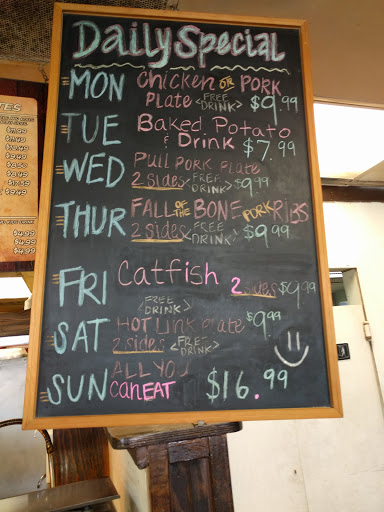 Daily Special
MON Chicken OR PORK
Plate <FREE DRINK> $9.99
TUE Baked Potato
& Drink $7.99
WED Pull PORK Plate
2 sides <FREE DRINK> $9.99
THUR FALL OF THE BONE PORK RIBS
2 sides FREE DRINK> $9.99
FRI Catfish 2 sides $9.99
<FREE DRINK>
SAT HOT Link Plate $9.99
2 sides <FREE DRINK>
SUN ALL YOU
can EAT $16.99